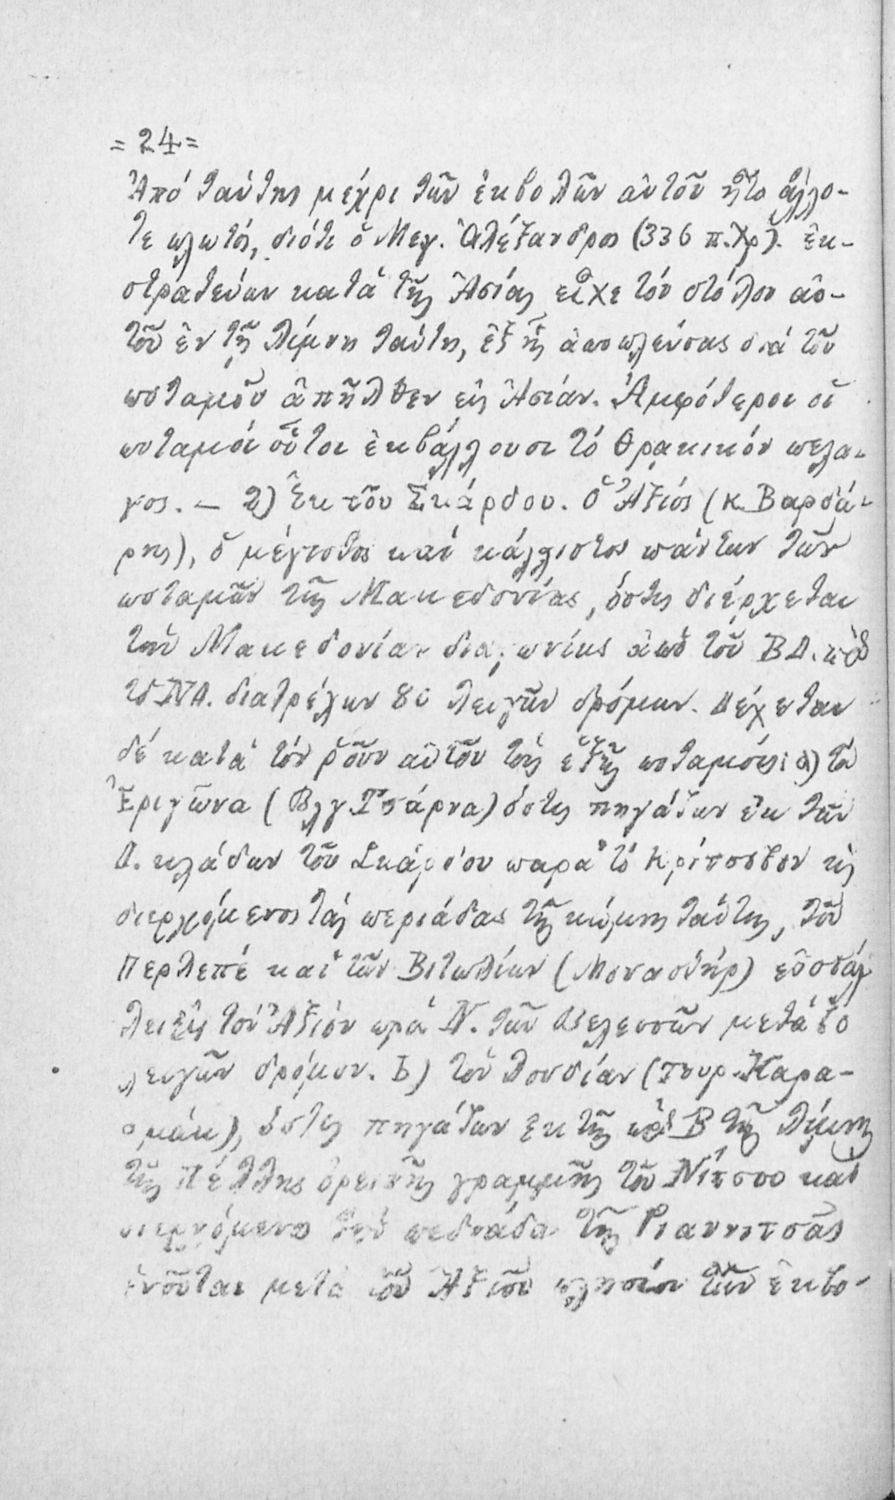 =24=
Ἀπό ταύτης μέχρι τῶν ἐκβολῶν αὐτοῦ ἦτο ἄλλο-
τε πλωτός, διότι ὁ Μεγ. Ἀλέξανδρος (336 π.Χρ). ἐκ-
στρατεύων κατά τῆς Ἀσίας εἶχε τόν στόλον αὑ-
τοῦ ἐν τῇ λίμνῃ ταύτῃ, ἐξ ἧς ἀποπλεύσας διά τοῦ
ποταμοῦ ἀπῆλθεν εἰς Ἀσίαν. Ἀμφότεροι οἱ
ποταμοί οὗτοι ἐκβάλλουσι τό Θρακικόν πελα-
γος. — 2) Ἐκ τοῦ Σκάρδου. Ὁ Ἀξιός (κ. Βαρδά-
ρης), ὁ μέγιστος καί κάλλιστος πάντων τῶν
ποταμῶν τῆς Μακεδονίας, ὅστις διέρχεται
τήν Μακεδονίαν διαγωνίως ἀπό τοῦ ΒΔ. πρός
τό ΝΑ. διατρέχων 80 λευγῶν δρόμον. Δέχεται
δέ κατά τόν ῥοῦν αὐτοῦ τούς ἑξῆς ποταμούς: α) τόν
Ἐριγῶνα (Βλγ. Τσάρνα) ὅστις πηγάζων ἐκ τῶν
Δ. κλάδων τοῦ Σκάρδου παρά τό Κρίτσοβον κ
διερχόμενος τάς πεδιάδας τῆς κώμης ταύτης, τοῦ
Περλεπέ καί τῶν Βιτωλίων (Μοναστήρ) εἰσβάλ
λει εἰς τόν Ἀξιόν πρό Ν. τῶν Βελεσσῶν μετά 50
λευγῶν δρόμον. b) τόν Λουδίαν (τουρ. Καρα-
σμάκ), ὅστις πηγάζων ἐκ τῆς πρός Β τῆς λίμνης
τῆς Πέλλης ὀρεινῆς γραμμῆς τοῦ Νίτσου καί
διερχόμενος τήν πεδιάδα τῆς Γιαννιτσᾶς
ἑνοῦται μετά τοῦ Ἀξιοῦ πλησίον τῶν ἐκβο-